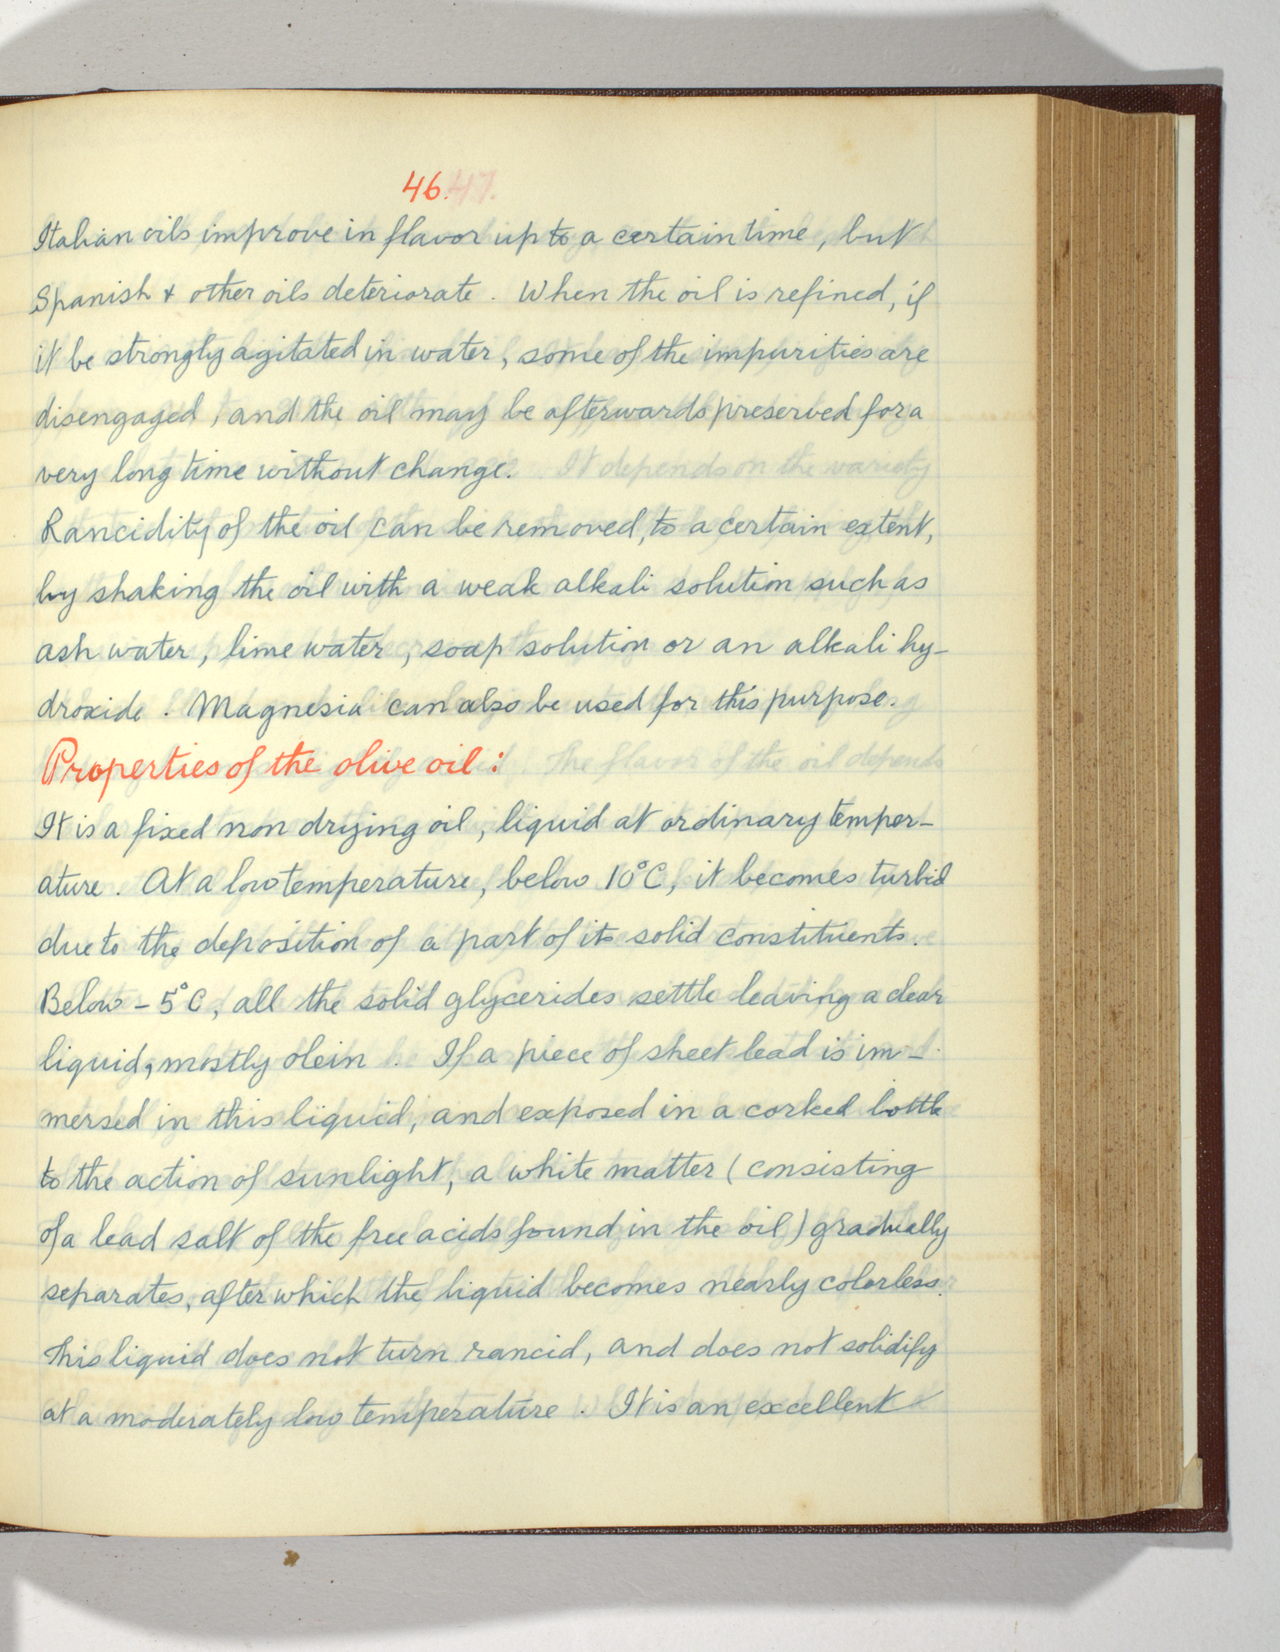 46.
Italian oils improve in flavor up to a certain time, but
Spanish & other oils deteriorate. When the oil is refined, if
it be strongly agitated in water, some of the impurities are
disengaged, and the oil may be afterwards preserved for a
very long time without change.
Rancidity of the oil can be removed, to a certain extent,
by shaking the oil with a weak alkali solution such as
ash water, lime water, soap solution or an alkali hy-
droxide. Magnesia can also be used for this purpose.
Properties of the olive oil:
It is a fixed non drying oil, liquid at ordinary temper-
ature. At a low temperature, below 10°C, it becomes turbid
due to the deposition of a part of its solid constituents.
Below -5°C, all the solid glycerides settle leaving a clear
liquid, mostly olein. If a piece of sheet lead is im-
mersed in this liquid, and exposed in a corked bottle
to the action of sunlight, a white matter (consisting
of a lead salt of the free acids found in the oil) gradually
separates, after which the liquid becomes nearly colorless.
This liquid does not turn rancid, and does not solidify
at a moderately low temperature. It is an excellent